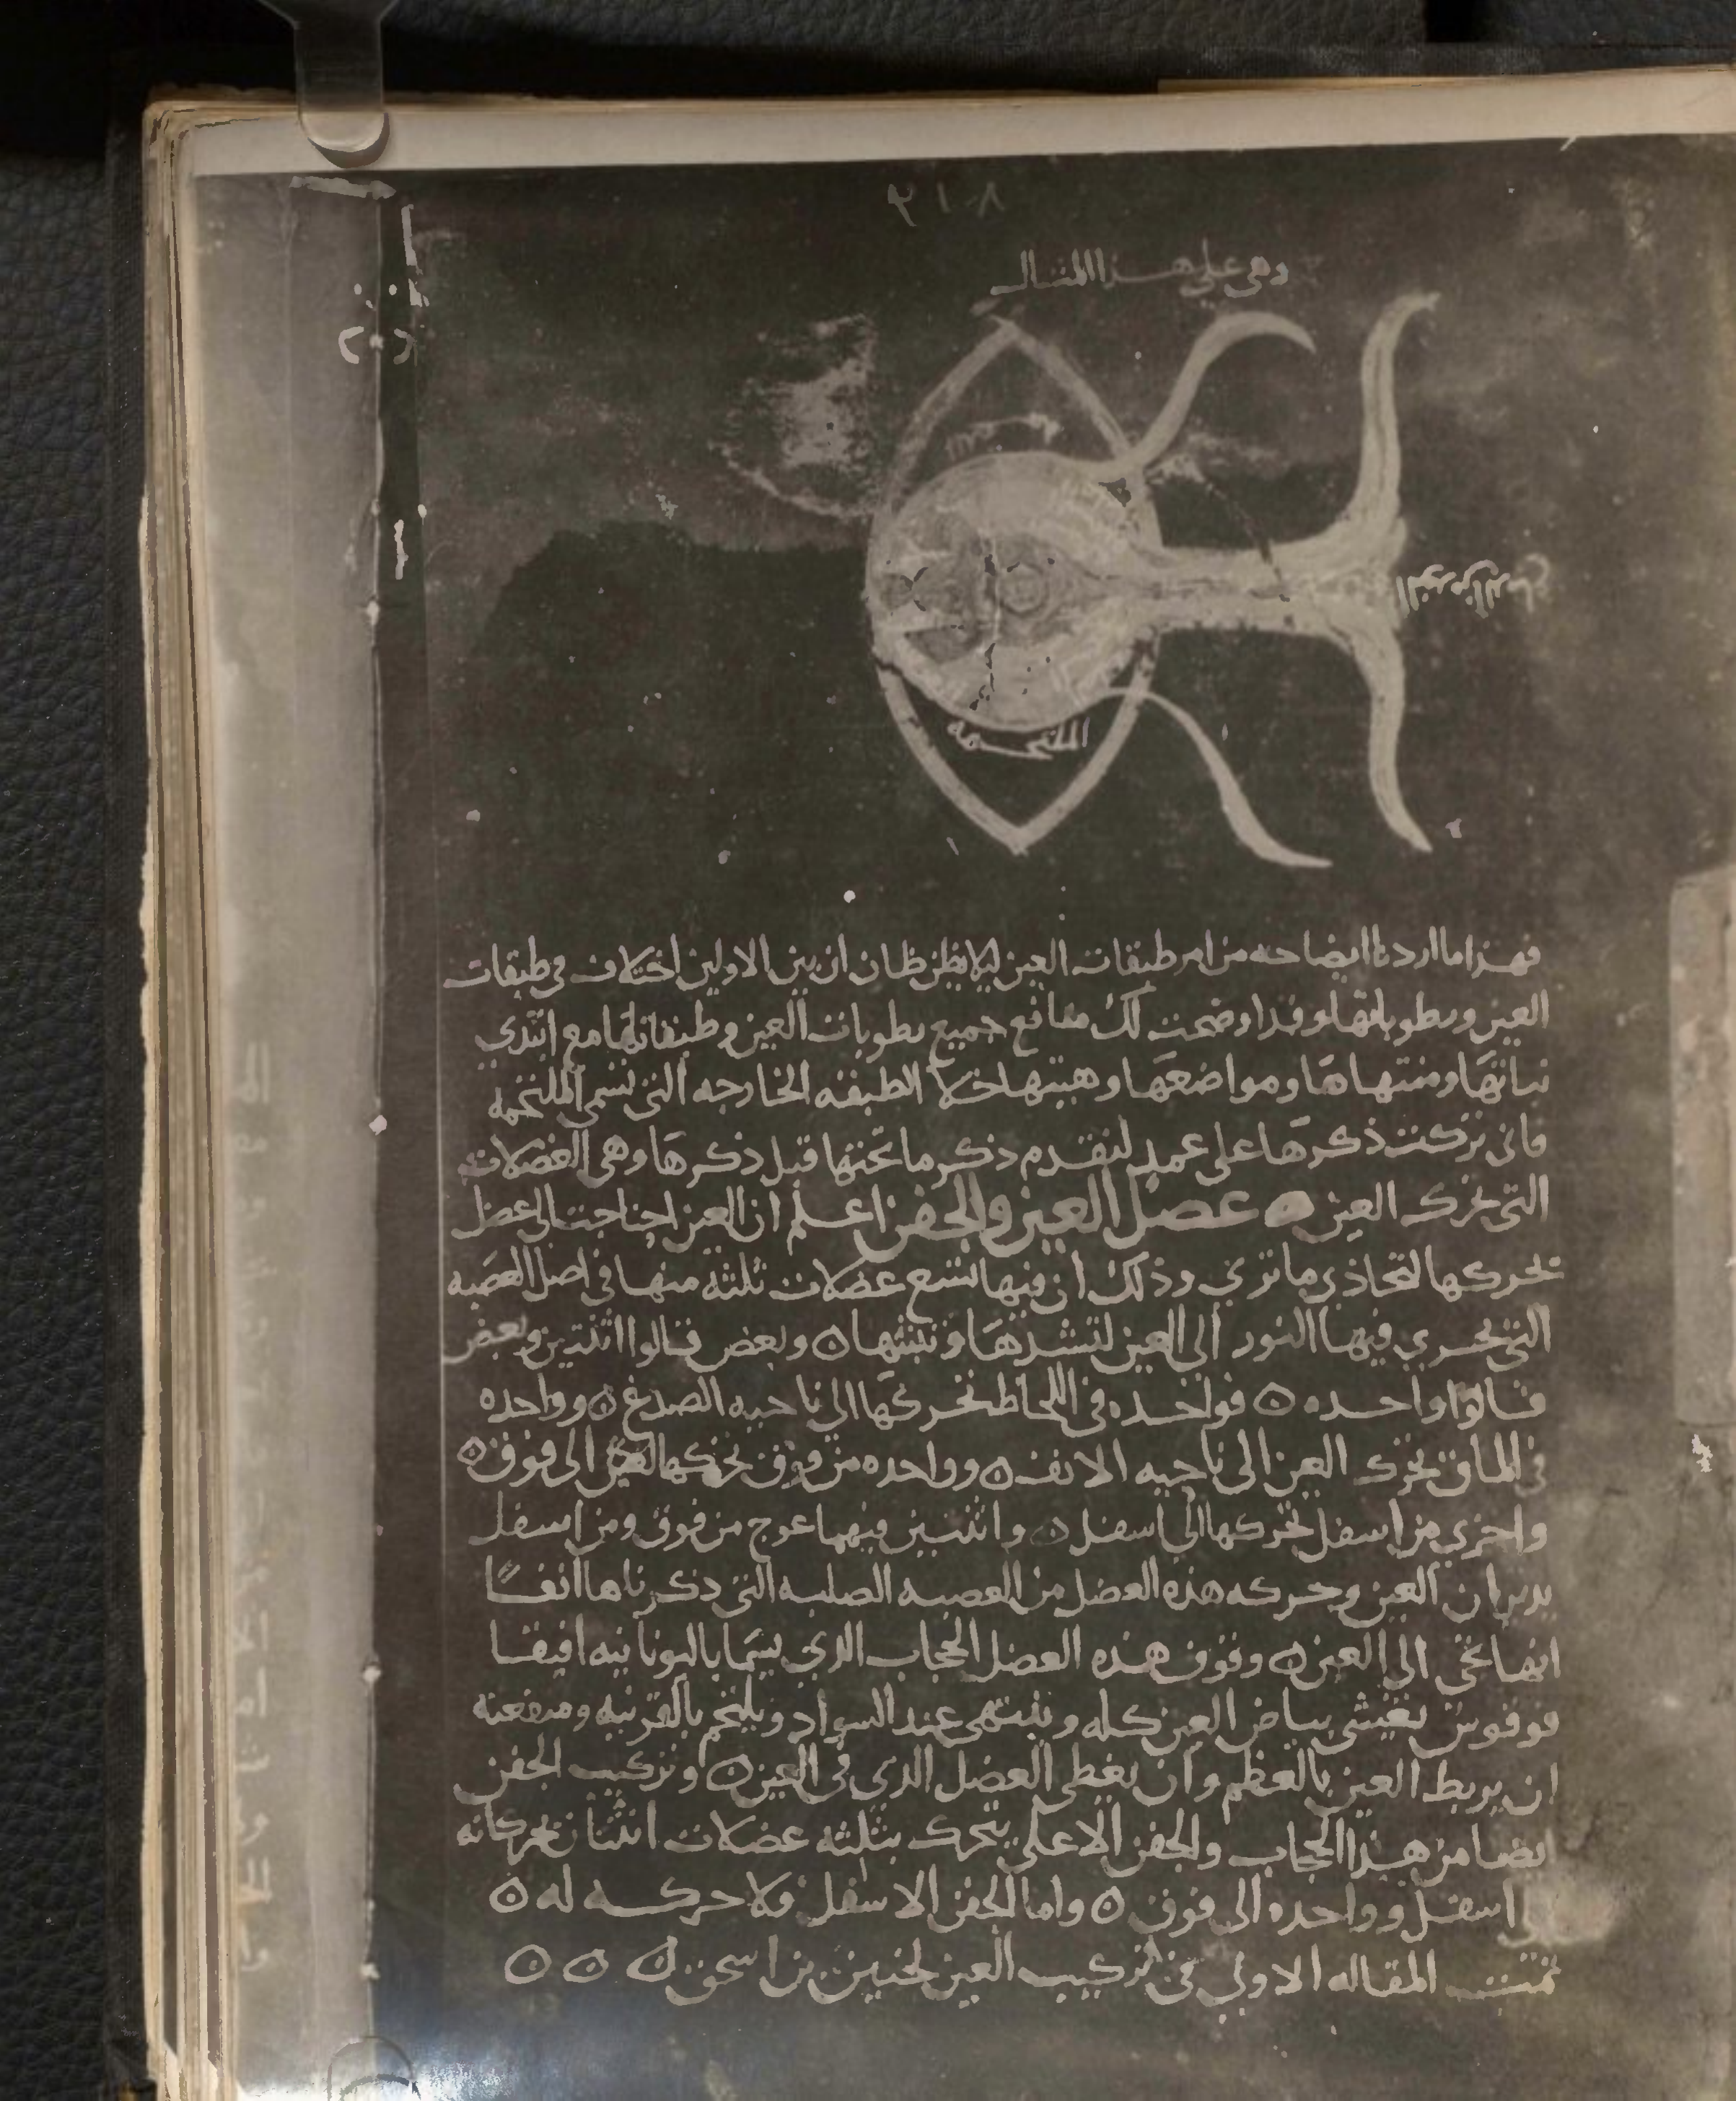 وهى على هذا المثال
الملتحمه
فهذا ما اردنا ايضاحه من امر طبقات العين ليلا يظن ظان ان بين الاولين اختلاف فى طبقات
العين ورطوباتها وقد اوضحت لك منافع جميع رطوبات العين وطبقاتها مع ابتدي
نباتها ومنتهاها ومواضعها وهيتها خلا الطبقه الخارجه التى تسمى الملتحمه
فانى تركت ذكرها على عمد لتقدم ذكر ما تحتها قبل ذكرها وهى العضلات
التى تحرك العين عضل العين والجفن اعلم ان العين احتاجت الى عضل
تحركها لتحاذي ما تري وذلك ان فيها تسع عضلات ثلثه منها فى اصل العصبه
التى يجري فيها النور الى العين لتشدها وتثبتها ه وبعض قالوا اثنتين وبعض
قالوا واحده ه فواحده فى اللحاظ تحركها الى ناحيه الصدغ ه وواحده
فى الماق تحرك العين الى ناحيه الانف ه وواحده من فوق تحركها الى فوق ه
واخري من اسفل تحركها الى اسفل ه واثنتين فيهما عوج من فوق ومن اسفل
يديران العين وحركه هذه العضل من العصبه الصلبه التى ذكرناها انفا
انها تجى الى العين ه وفوق هذه العضل الحجاب الذي يسما باليونانيه افيفا
فوفوس يغشى بياض العين كله وينتهى عند السواد ويلتحم بالقرنيه ومنفعته
ان يربط العين بالعظم وان يغطى العضل الذي فى العين ه وتركيب الجفن
ايضا من هذا الحجاب والجفن الاعلى يتحرك بثلثه عضلات اثنتان تحركانه
الى اسفل وواحده الى فوق ه واما الجفن الاسفل فلا حركه له ه
تمت المقاله الاولى فى تركيب العين لحنين بن اسحق ه ه ه